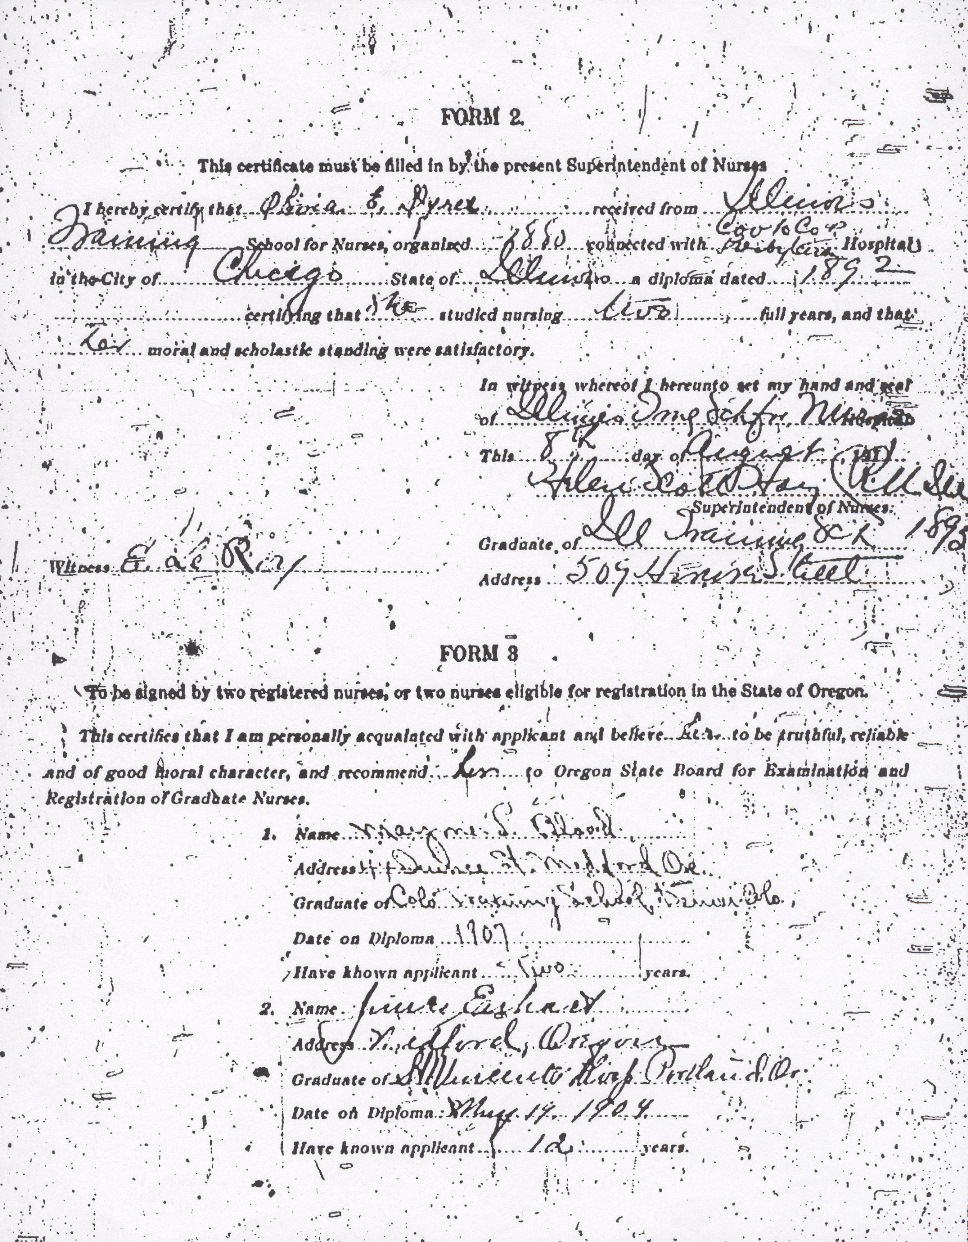 FORM 2.
This certificate must be filled in by the present Superintendent of Nurses
I hereby certify that Olivia E. received from Illinois
Training School for Nurses, organized 1880 connected with Cook Co & Presbyterian Hospitals
in the City of Chicago State of Illinois a diploma dated 1892
certifying that she studied nursing two full years, and that
her moral and scholastic standing were satisfactory.
In witness whereof I hereunto set my hand and seal
of Illinois Trng Sch for Nurses Hospital
This 8th day of August 1911
Helen Scott Hay (R.N. Ill
Superintendent of Nurses.
Graduate of Ill Training Sch 1895
Witness E. Le Roy
Address 509 Honore Street
FORM 3
To be signed by two registered nurses, or two nurses eligible for registration in the State of Oregon.
This certifies that I am personally acquainted with applicant and believe her to be truthful, reliable
and of good moral character, and recommend her to Oregon State Board for Examination and
Registration of Graduate Nurses.
1. Name Mayme L. Blood
Address St. Medford Ore.
Graduate of Colo Training School, Denver Colo.
Date on Diploma 1907
Have known applicant Two years.
2. Name
Address Medford, Oregon
Graduate of St Vincents Hosp Portland, Or.
Date on Diploma May 19. 1904
Have known applicant 12 years.